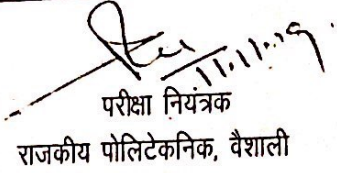 11.11.19.
परीक्षा नियंत्रक
राजकीय पोलिटेकनिक, वैशाली